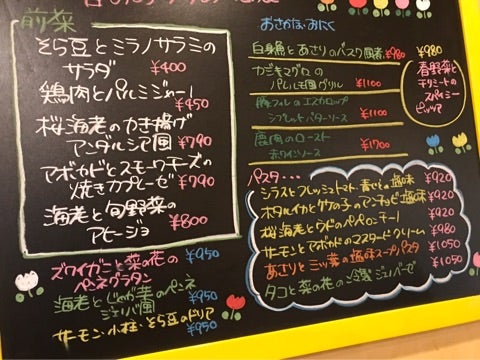 前菜
そら豆とミラノサラミの
サラダ ¥400
鶏肉とパルミジャーノ
¥450
桜海老のかき揚げ
アンダルシア風 ¥790
アボカドとスモークチーズの
焼きカプレーゼ ¥790
海老と旬野菜の
アヒージョ ¥800
ズワイガニと菜の花の
ペンネグラタン ¥950
海老とじゃが芋のペンネ
ジェノバ風 ¥950
サーモン・小柱・そら豆のドリア
¥950
おさかな・おにく
白身魚とあさりのバスク風煮 ¥980
カジキマグロの
パレルモ風グリル ¥1100
豚フィレのエスカロップ
シブレットバターソース ¥1100
鹿肉のロースト
赤ワインソース ¥1700
¥980
春野菜と
チリミートの
スパイシー
ピッツァ
パスタ・・・
シラスとフレッシュトマト、青じその塩味 ¥920
ホタルイカとタケの子のアンチョビ塩味 ¥920
桜海老とウドのペペロンチーノ ¥920
サーモンとアボカドのマスタードクリーム ¥980
あさりと三ツ葉の塩味スープパスタ ¥1050
タコと菜の花の冷製ジェノベーゼ ¥1050